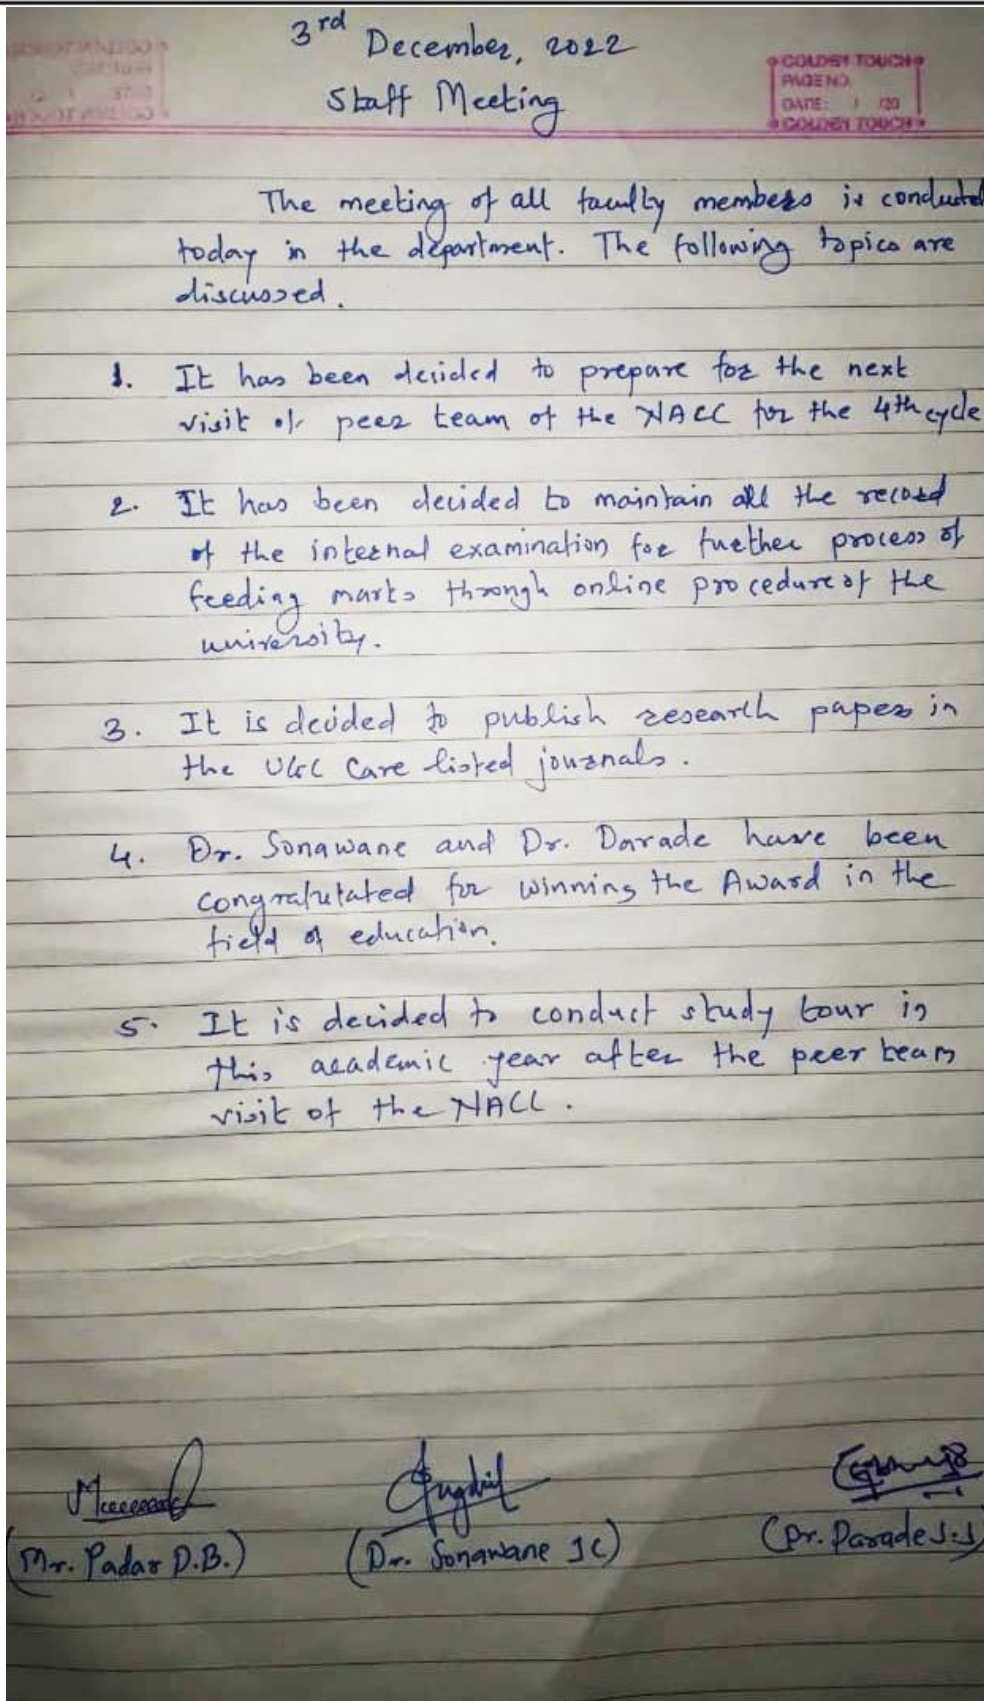 3rd December, 2022
Staff Meeting
GOLDEN TOUCH
PAGE NO.
DATE: / /20
GOLDEN TOUCH
The meeting of all faculty members is conducted
today in the department. The following topics are
discussed.
1. It has been decided to prepare for the next
visit of peer team of the NACC for the 4th cycle
2. It has been decided to maintain all the record
of the internal examination for further process of
feeding marks through online procedure of the
university.
3. It is decided to publish research paper in
the UGC Care listed journals.
4. Dr. Sonawane and Dr. Darade have been
congratulated for winning the Award in the
field of education.
5. It is decided to conduct study tour in
this academic year after the peer team
visit of the NACC.
(Mr. Padar D.B.) (Dr. Sonawane JC) (Dr. Darade S.S)